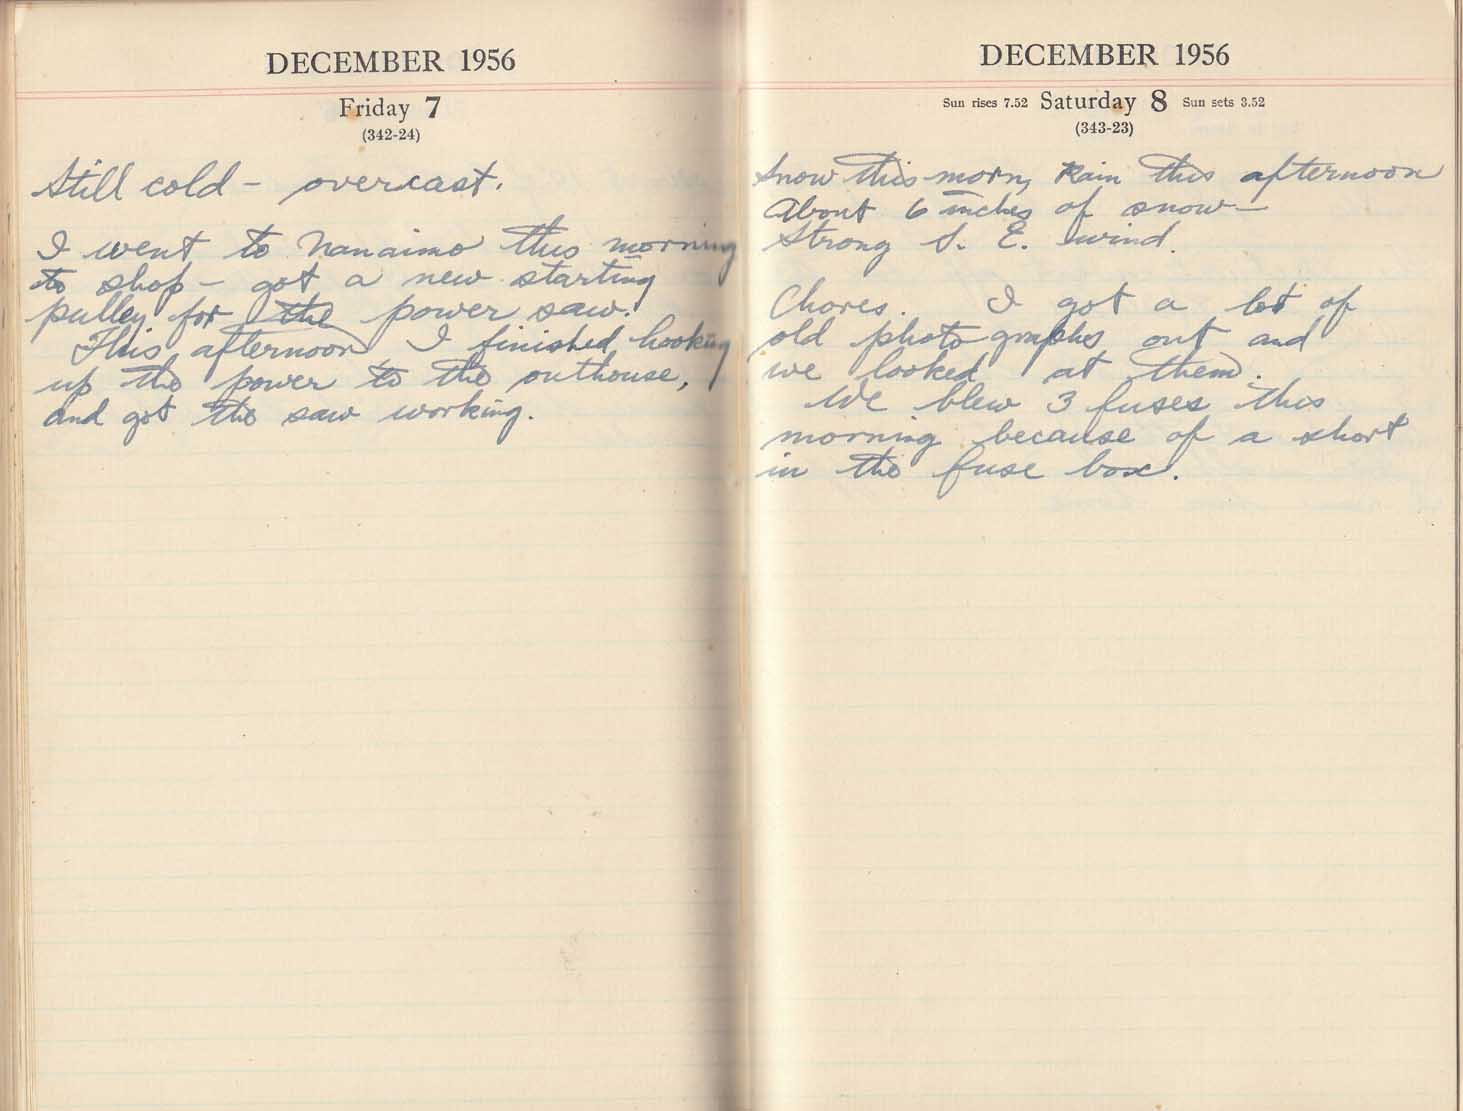 DECEMBER 1956
Friday 7
(342-24)
Still cold - overcast.
I went to Nanaimo this morning
to shop - got a new starting
pulley for the power saw.
This afternoon I finished hooking
up the power to the outhouse,
and got the saw working.
DECEMBER 1956
Sun rises 7.52 Saturday 8 Sun sets 3.52
(343-23)
Snow this morn, Rain this afternoon
About 6 inches of snow -
Strong S. E. wind.
Chores. I got a lot of
old photographs out and
we looked at them.
We blew 3 fuses this
morning because of a short
in the fuse box.